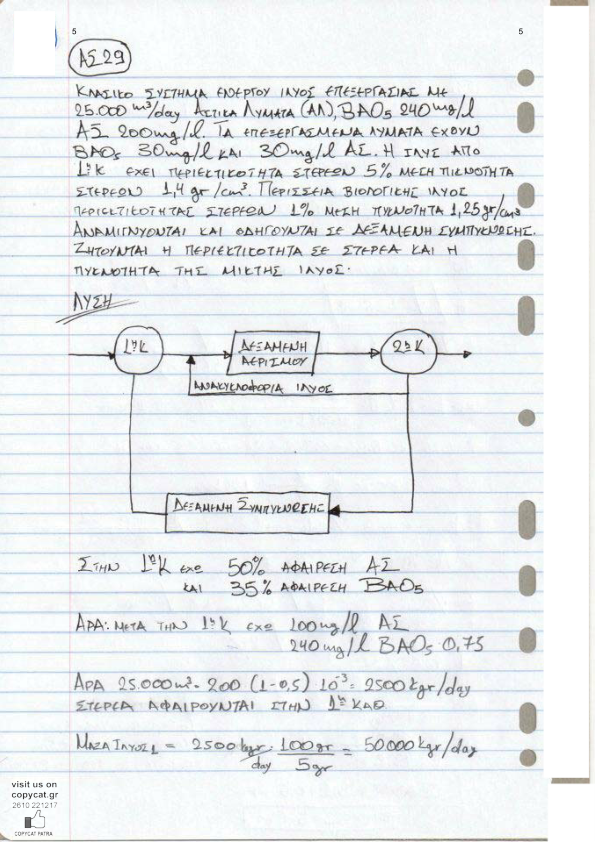 5
5
ΑΣ 29
ΚΛΑΣΙΚΟ ΣΥΣΤΗΜΑ ΕΝΕΡΓΟΥ ΙΛΥΟΣ ΕΠΕΞΕΡΓΑΣΙΑΣ ΜΕ
25.000 m³/day ΑΣΤΙΚΑ ΛΥΜΑΤΑ (ΑΛ), ΒΑΟ₅ 240 mg/l
ΑΣ 200 mg/l. ΤΑ ΕΠΕΞΕΡΓΑΣΜΕΝΑ ΛΥΜΑΤΑ ΕΧΟΥΝ
ΒΑΟ₅ 30 mg/l ΚΑΙ 30 mg/l ΑΣ. Η ΙΛΥΣ ΑΠΟ
1ηΚ ΕΧΕΙ ΠΕΡΙΕΚΤΙΚΟΤΗΤΑ ΣΤΕΡΕΩΝ 5% ΜΕΣΗ ΠΙΚΝΟΤΗΤΑ
ΣΤΕΡΕΩΝ 1,4 gr/cm³. ΠΕΡΙΣΣΕΙΑ ΒΙΟΛΟΓΙΚΗΣ ΙΛΥΟΣ
ΠΕΡΙΕΚΤΙΚΟΤΗΤΑΣ ΣΤΕΡΕΩΝ 1% ΜΕΣΗ ΠΥΚΝΟΤΗΤΑ 1,25 gr/cm³
ΑΝΑΜΙΓΝΥΟΝΤΑΙ ΚΑΙ ΟΔΗΓΟΥΝΤΑΙ ΣΕ ΔΕΞΑΜΕΝΗ ΣΥΜΠΥΚΝΩΣΗΣ.
ΖΗΤΟΥΝΤΑΙ Η ΠΕΡΙΕΚΤΙΚΟΤΗΤΑ ΣΕ ΣΤΕΡΕΑ ΚΑΙ Η
ΠΥΚΝΟΤΗΤΑ ΤΗΣ ΜΙΚΤΗΣ ΙΛΥΟΣ.
ΛΥΣΗ
1ηΚ
ΔΕΞΑΜΕΝΗ
ΑΕΡΙΣΜΟΥ
2ηΚ
ΑΝΑΚΥΚΛΟΦΟΡΙΑ ΙΛΥΟΣ
ΔΕΞΑΜΕΝΗ ΣΥΜΠΥΚΝΩΣΗΣ
ΣΤΗΝ 1ηΚ ΕΧΩ 50% ΑΦΑΙΡΕΣΗ ΑΣ
ΚΑΙ 35% ΑΦΑΙΡΕΣΗ ΒΑΟ₅
ΑΡΑ: ΜΕΤΑ ΤΗΝ 1ηΚ ΕΧΩ 100 mg/l ΑΣ
240 mg/l ΒΑΟ₅ · 0,75
ΑΡΑ 25.000 m³ · 200 (1-0,5) · 10⁻³ = 2500 kgr/day
ΣΤΕΡΕΑ ΑΦΑΙΡΟΥΝΤΑΙ ΣΤΗΝ 1η ΚΑΘ
ΜΑΖΑ ΙΛΥΟΣ₁ = 2500 kgr/day · 100 gr/5 gr = 50000 kgr/day
visit us on
copycat.gr
2610 221217
COPYCAT PATRA